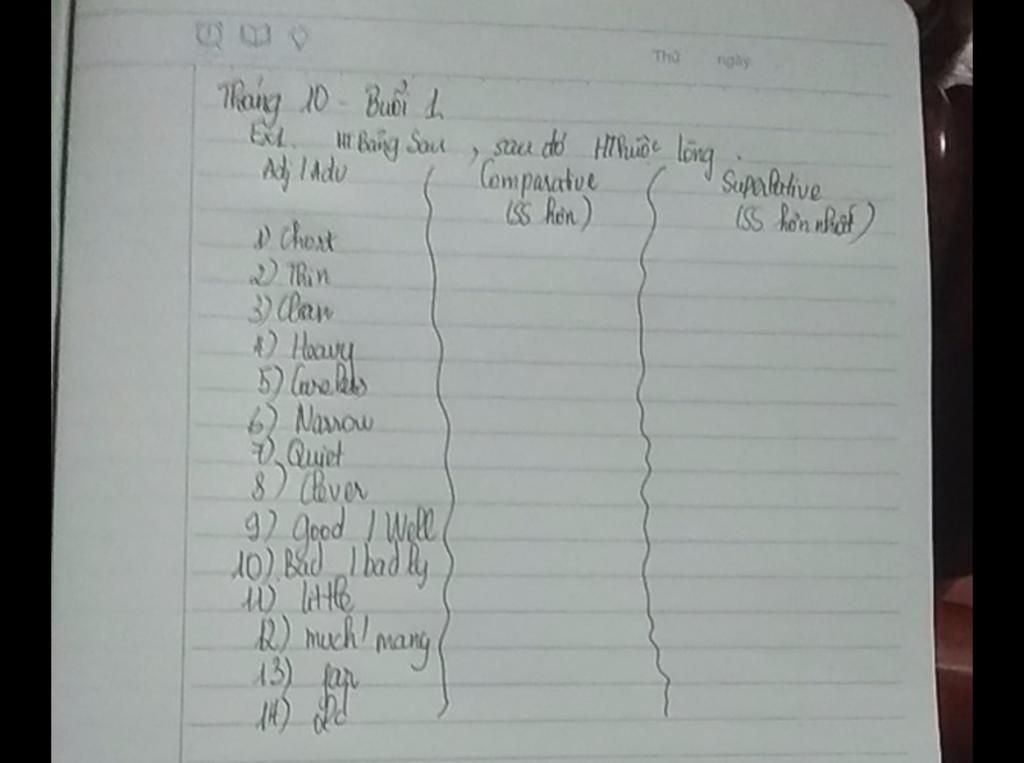 Thứ ngày
Tháng 10 - Buổi 1.
Ex1. HT Bảng sau, sau đó HThuộc lòng.
Adj / Adv Comparative Superlative
(SS hơn) (SS hơn nhất)
1)
2) Thin
3) Clean
4) Heavy
5) Careless
6) Narrow
7) Quiet
8) Clever
9) Good / Well
10) Bad / badly
11) little
12) much / many
13) far
14) old